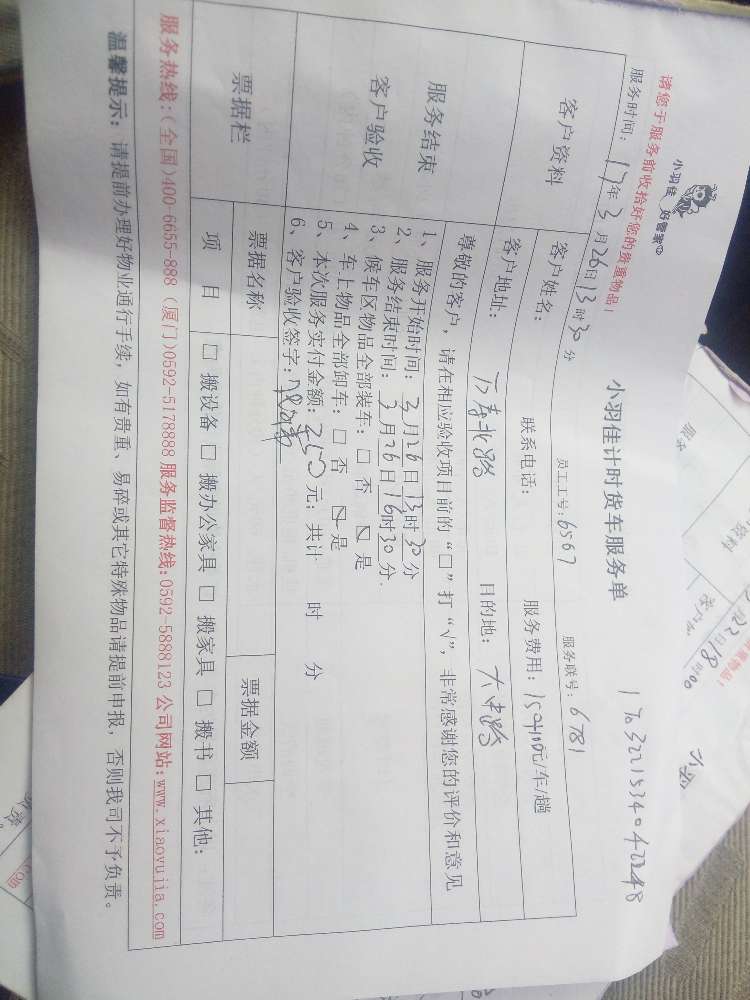 小羽佳 好管家
小羽佳计时货车服务单
1703221534042248
请您于服务前收拾好您的贵重物品!
服务时间: 17年3月26日13时30分
员工工号: 6567
服务联号: 6781
客户资料
客户姓名:
联系电话:
服务费用:
元/车/趟
客户地址:
目的地:
尊敬的客户,请在相应验收项目前的“□”打“√”,非常感谢您的评价和意见
服务结束
客户验收
1、服务开始时间: 3月26日13时30分
2、服务结束时间: 3月26日16时30分.
3、候车区物品全部装车: □ 否 ☑ 是
4、车上物品全部卸车: □ 否 ☑ 是
5、本次服务实付金额: 350元; 共计 时 分
6、客户验收签字:
票据栏
票据名称
票据金额
项 目
□ 搬设备 □ 搬办公家具 □ 搬家具 □ 搬书 □ 其他:
服务热线:(全国)400-6655-888 (厦门)0592-5178888 服务监督热线:0592-5888123 公司网站:www.xiaoyujia.com
温馨提示: 请提前办理好物业通行手续,如有贵重、易碎或其它特殊物品请提前申报,否则我司不予负责。